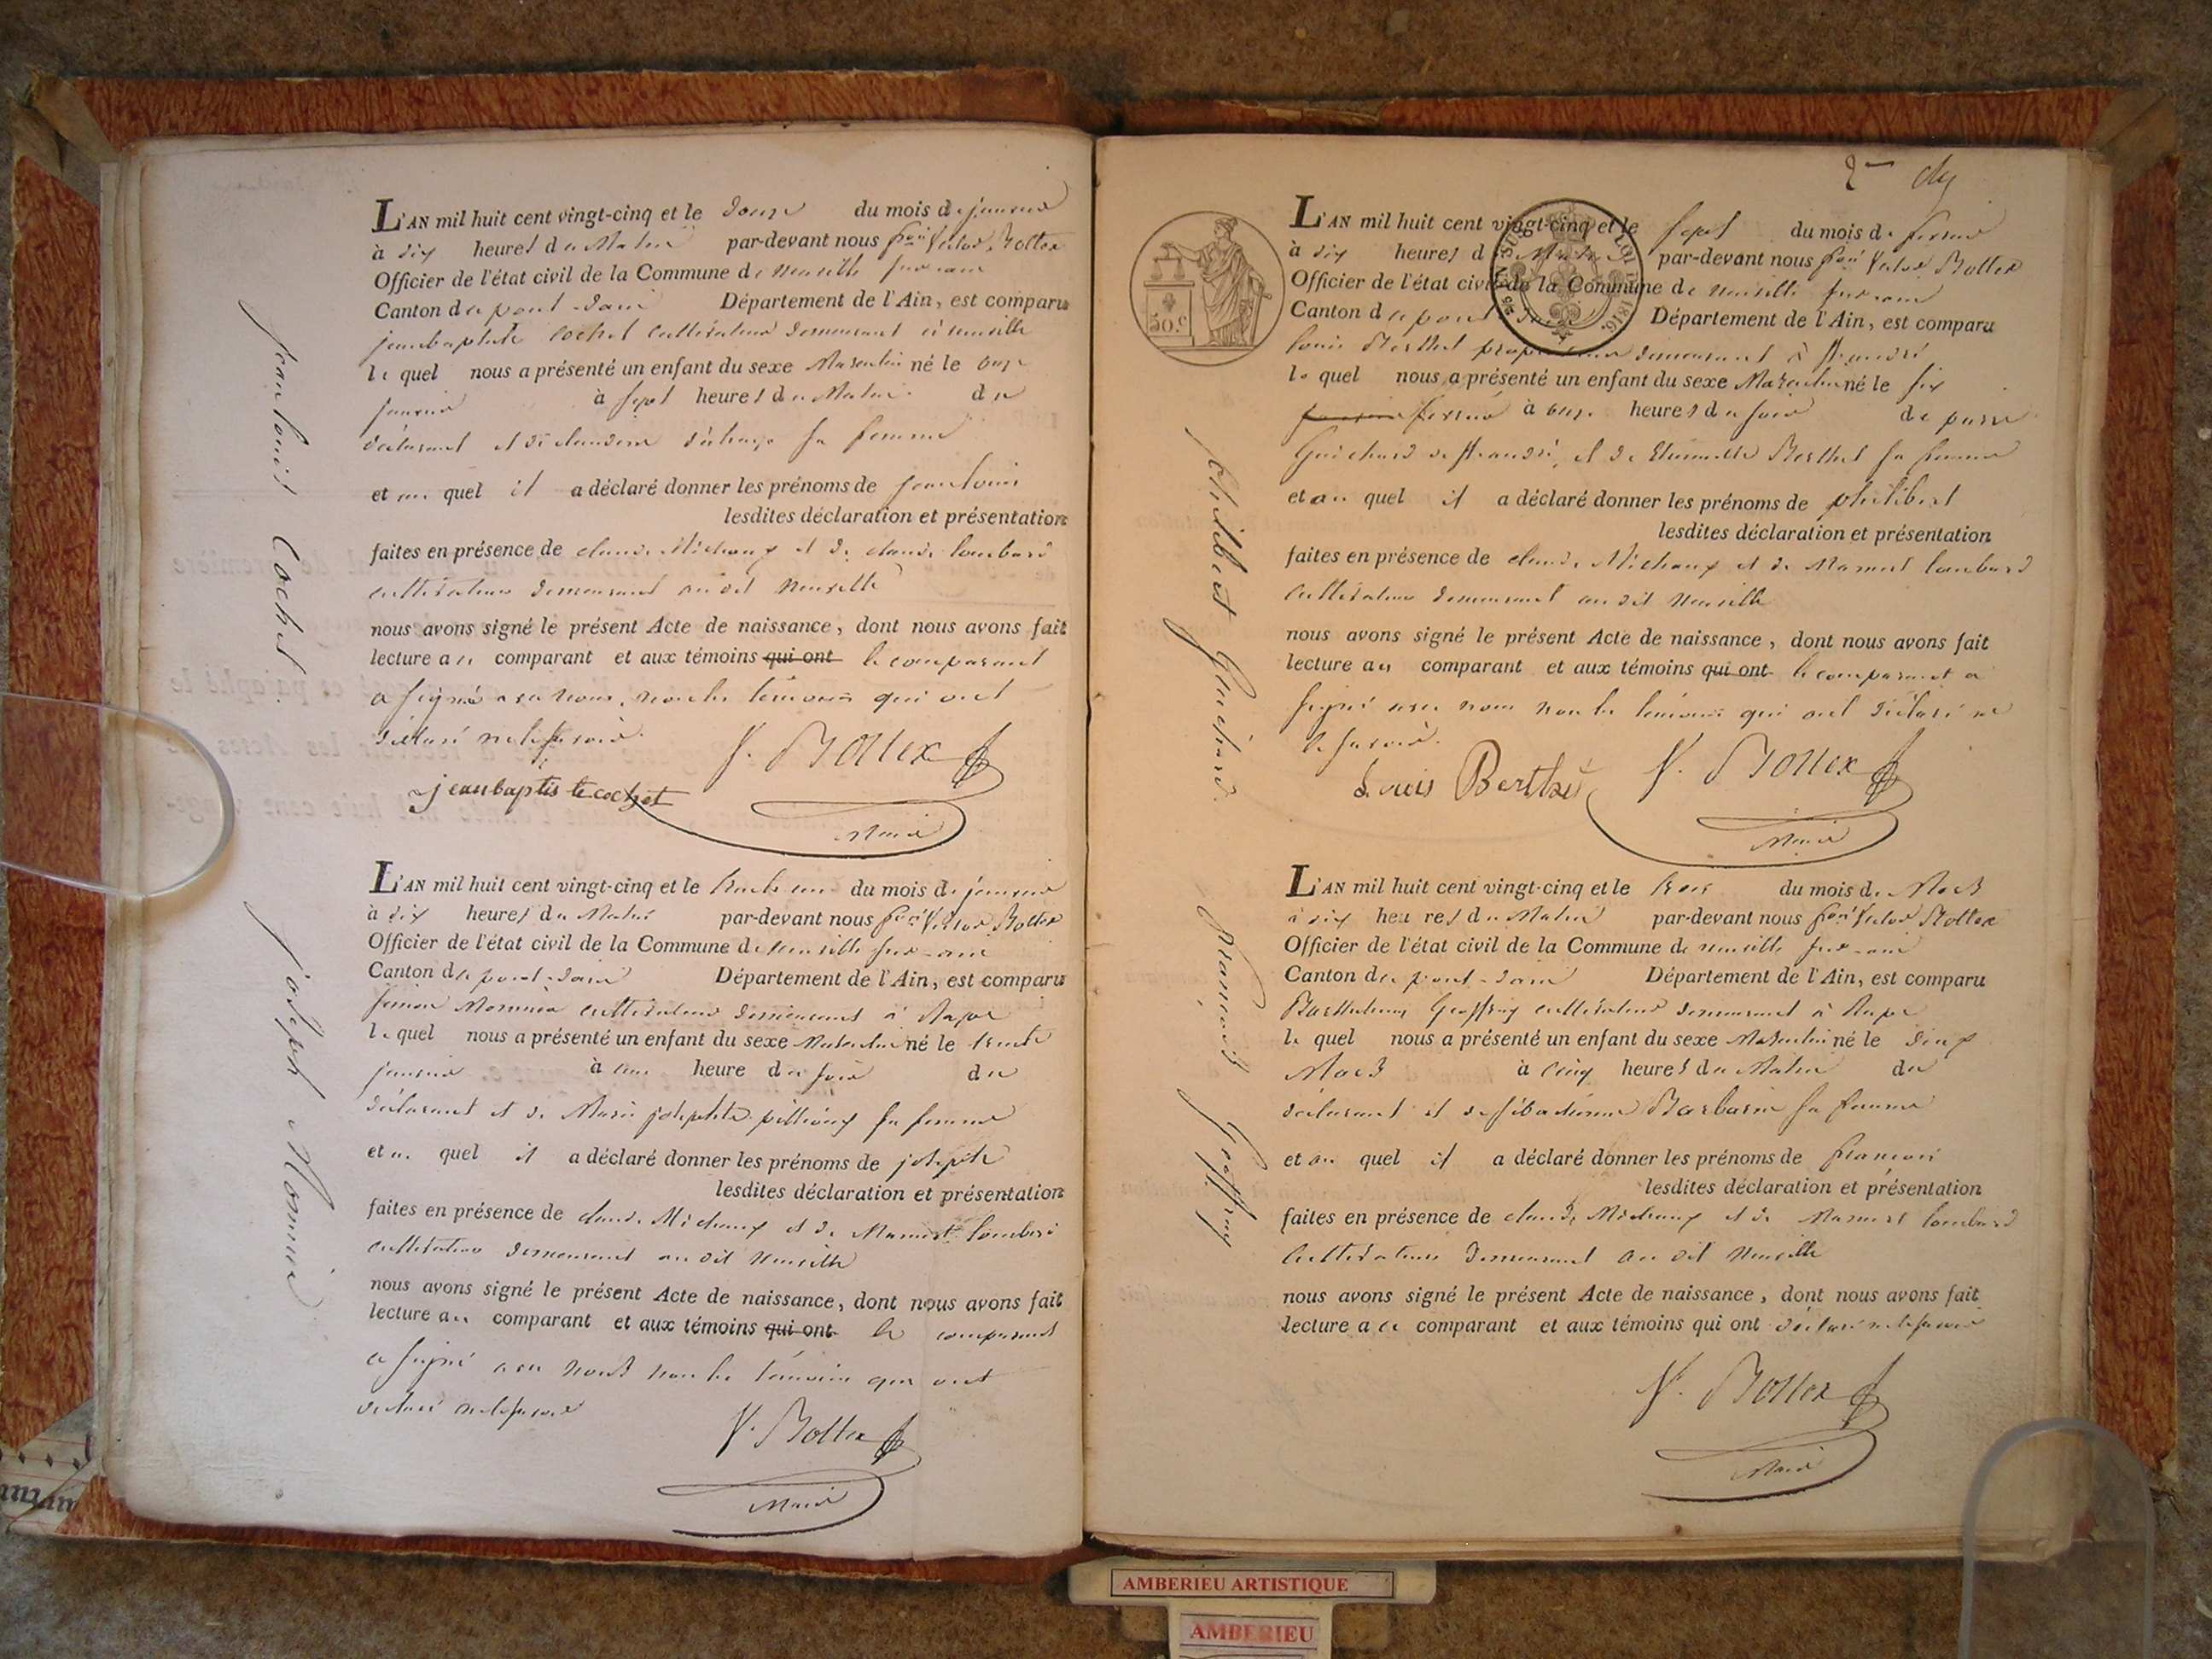 Jean Louis Cochet
L'AN mil huit cent vingt-cinq et le douze du mois de janvier
à dix heures du Matin par-devant nous fçois Victor Bottex
Officier de l'état civil de la Commune de neuville sur ain
Canton de pont-dain Département de l'Ain, est comparu
jean baptiste cochet cultivateur demeurant à neuville
le quel nous a présenté un enfant du sexe Masculin né le onze
janvier à sept heures du Matin du
déclarant et de claudine sa femme
et au quel il a déclaré donner les prénoms de jean louis
lesdites déclaration et présentation
faites en présence de claude Michaux et de claude lombard
cultivateurs demeurant au dit Neuville
nous avons signé le présent Acte de naissance, dont nous avons fait
lecture au comparant et aux témoins qui ont le comparant
a signé avec nous, non les témoins qui ont
déclaré ne le savoir.
V. Bottex
jean baptis te cochet
Maire
joseph Monnier
L'AN mil huit cent vingt-cinq et le trente un du mois de janvier
à dix heures du Matin par-devant nous fçois Victor Bottex
Officier de l'état civil de la Commune de Neuville sur-ain
Canton de pont-dain Département de l'Ain, est comparu
cultivateur demeurant à
le quel nous a présenté un enfant du sexe Masculin né le trente
janvier à une heure du soir du
déclarant et de Marie josephte sa femme
et au quel il a déclaré donner les prénoms de joseph
lesdites déclaration et présentation
faites en présence de claude Michaux et de Mamert lombard
cultivateurs demeurant au dit Neuville
nous avons signé le présent Acte de naissance, dont nous avons fait
lecture au comparant et aux témoins qui ont le comparant
a signé avec nous non les témoins qui ont
déclaré ne le savoir
V. Bottex
Maire
2me
50.c
LOI 1816
Philibert Guichard.
L'AN mil huit cent vingt-cinq et le sept du mois de fevrier
à dix heures du Matin par-devant nous fçois Victor Bottex
Officier de l'état civil de la Commune de neuville sur-ain
Canton de pont dain Département de l'Ain, est comparu
louis Berthet demeurant à St andré
le quel nous a présenté un enfant du sexe Masculin né le six
fevrier à onze heures du soir de
Guichard de St andré, et de Berthet sa femme
et au quel il a déclaré donner les prénoms de philibert
lesdites déclaration et présentation
faites en présence de claude Michaux et de Mamert lombard
cultivateurs demeurant au dit Neuville
nous avons signé le présent Acte de naissance, dont nous avons fait
lecture au comparant et aux témoins qui ont le comparant a
signé avec nous non les témoins qui ont déclaré ne
le savoir.
Louis Berthet
V. Bottex
Maire
François Geoffray
L'AN mil huit cent vingt-cinq et le trois du mois de Mars
à dix heures du Matin par-devant nous fçois Victor Bottex
Officier de l'état civil de la Commune de neuville sur-ain
Canton de pont-dain Département de l'Ain, est comparu
Barthelemy Geoffray cultivateur demeurant à
le quel nous a présenté un enfant du sexe Masculin né le deux
Mars à cinq heures du Matin du
déclarant et de Barbarin sa femme
et au quel il a déclaré donner les prénoms de françois
lesdites déclaration et présentation
faites en présence de claude Michaux et de Mamert lombard
cultivateurs demeurant au dit Neuville
nous avons signé le présent Acte de naissance, dont nous avons fait
lecture au comparant et aux témoins qui ont déclaré ne le savoir
V. Bottex
Maire
AMBERIEU ARTISTIQUE
AMBERIEU